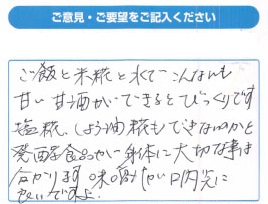 ご意見・ご要望をご記入ください
ご飯と米糀と水で こんなにも
甘い甘酒ができるとびっくりです
塩糀、しょう油糀もできないのかと
発酵食品が身体に大切な事は
分かり
良いですよ。